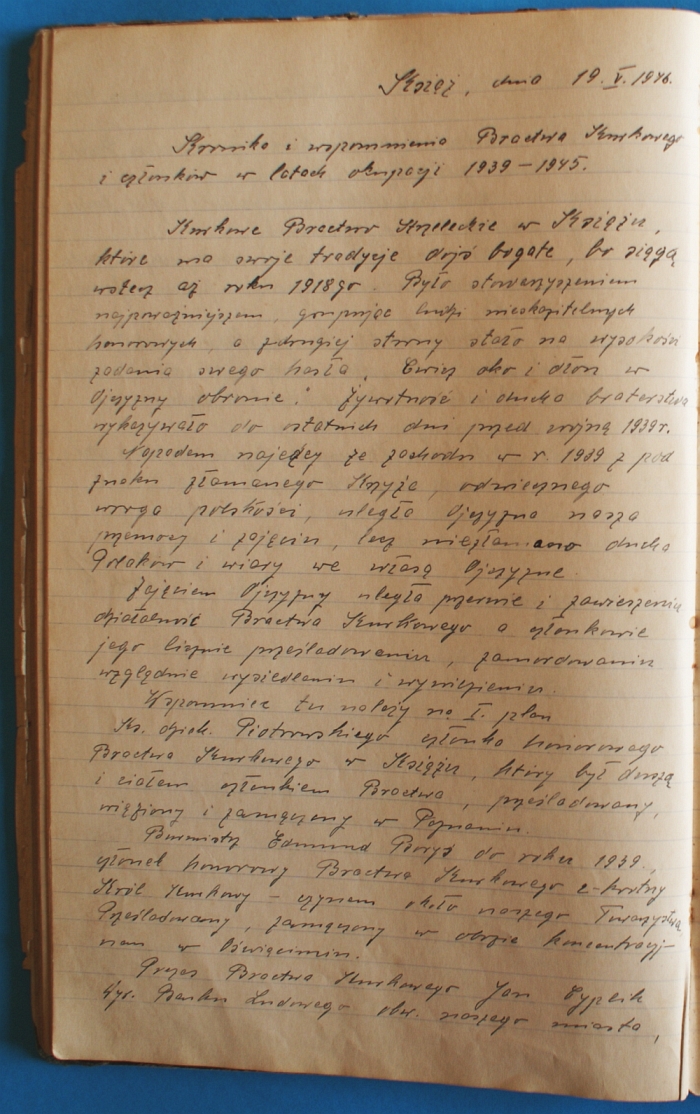 Książ, dnia 19. V. 1946.
Kronika i wspomnienia Bractwa Kurkowego
i członków w latach okupacji 1939 – 1945.
Kurkowe Bractwo Strzeleckie w Książu,
które ma swoje tradycje dość bogate, bo sięga
wstecz aż roku 1918go. Było stowarzyszeniem
najpoważniejszem, grupując ludzi nieskazitelnych
honorowych, a zdrugiej strony stało na wysokości
zadania swego hasła, Ćwicz oko i dłoń w
Ojczyzny obronie." Żywotność i ducha braterstwa
wykazywało do ostatnich dni przed wojną 1939 r.
Napadem najeźdzcy ze zachodu w r. 1939 z pod
znaku złamanego Krzyża, odwiecznego
wroga polskości, uległa Ojczyzna nasza
przemocy i zajęciu, lecz niezłamano ducha
Polaków i wiary we własą Ojczyznę.
Zajęciem Ojczyzny uległa przerwie i zawieszeniu
działalność Bractwa Kurkowego a członkowie
jego licznie prześladowaniu, zamordowaniu
względnie wysiedleniu i wywiezieniu.
Wspomnieć tu należy na I. plan
Ks. dziek. Piotrowskiego członka honorowego
Bractwa Kurkowego w Książu, który był duszą
i ciałem członkiem Bractwa, prześladowany,
więziony i zamęczony w Poznaniu.
Burmistrz Edmund Boryś do roku 1939,
członek honorowy Bractwa Kurkowego 2-krotny
Król Kurkowy – czynem około naszego Towarzystwa
Prześladowany, zamęczony w obozie koncentracyj-
nem w Oświęcimiu.
Prezes Bractwa Kurkowego Jan
Dyr. Banku Ludowego obw. naszego miasta,